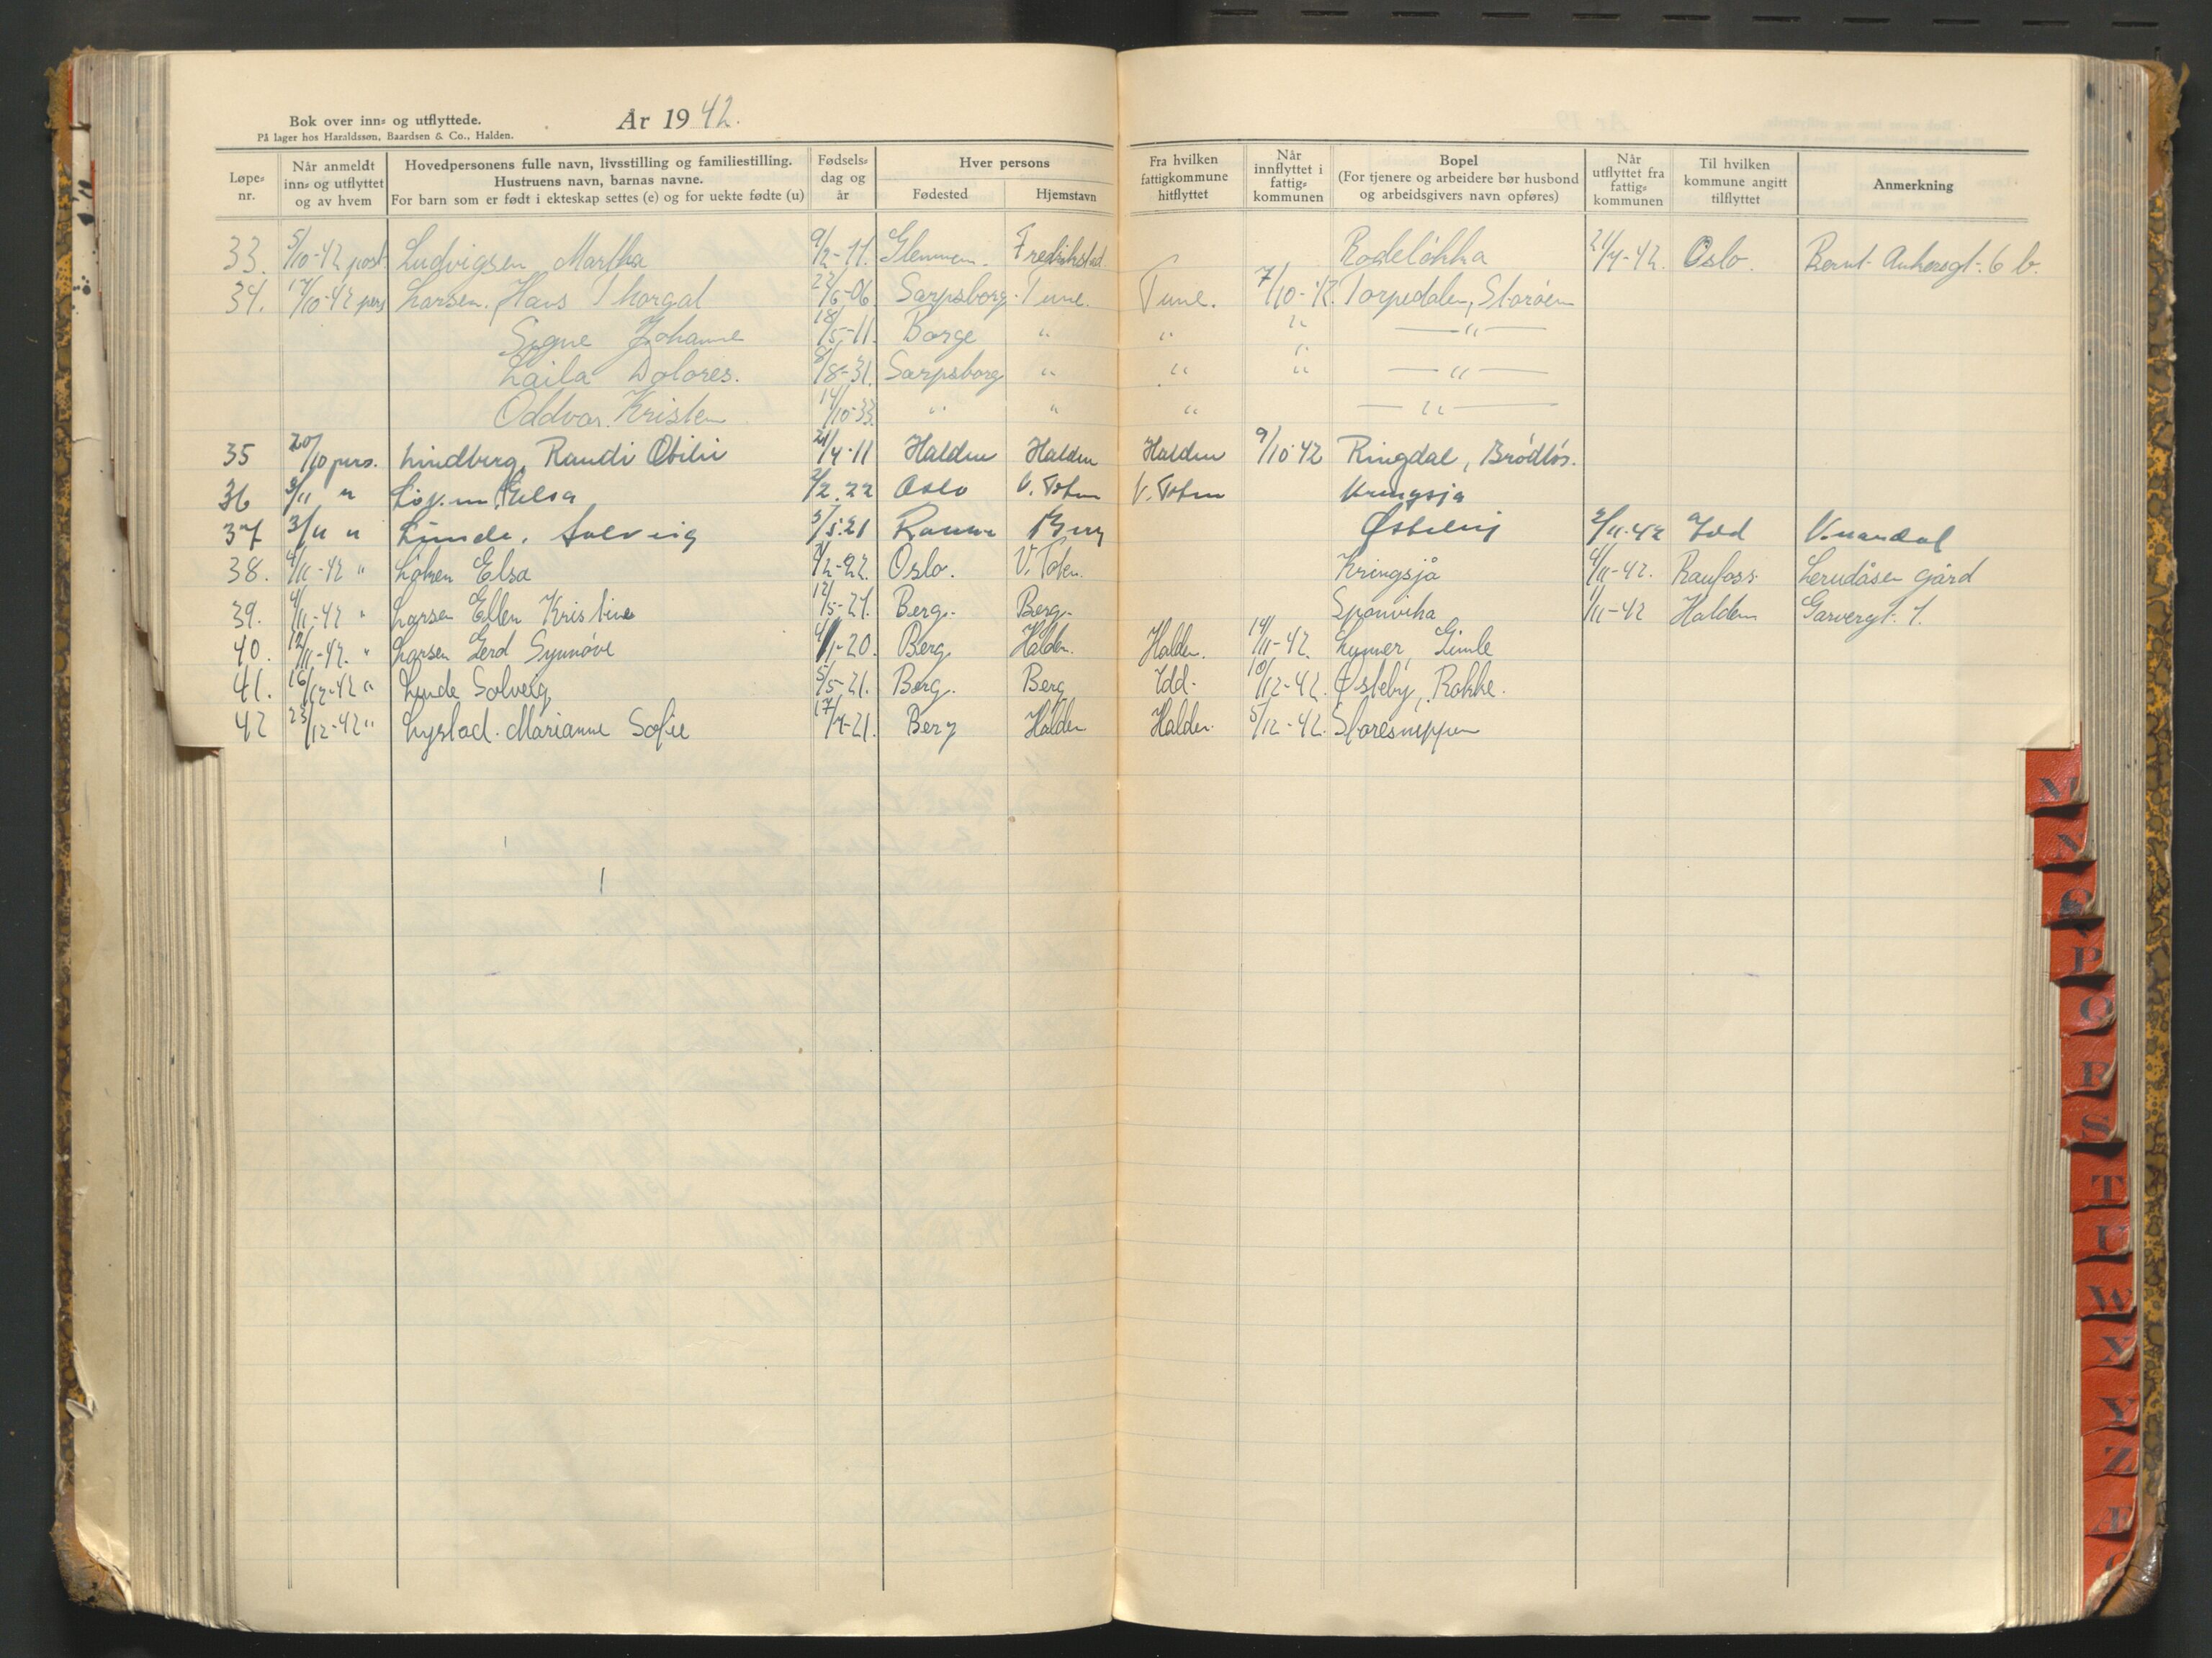 Bok over inn- og utflyttede.
På lager hos Haraldssøn, Baardsen & Co., Halden.
År 1942.
Løpe-nr. | Når anmeldt inn- og utflyttet og av hvem | Hovedpersonens fulle navn, livsstilling og familiestilling. Hustruens navn, barnas navne. For barn som er født i ekteskap settes (e) og for uekte fødte (u) | Fødsels-dag og år | Hver persons Fødested | Hjemstavn | Fra hvilken fattigkommune hitflyttet | Når innflyttet i fattig-kommunen | Bopel (For tjenere og arbeidere bør husbond og arbeidsgivers navn opføres) | Når utflyttet fra fattig-kommunen | Til hvilken kommune angitt tilflyttet | Anmerkning
33. 5/10-42 post Ludvigsen Martha 9/2-11. Glemmen. Fredrikstad Rødeløkka 21/4-42. Oslo. Bernt Ankersgt. 6 b.
34. 17/10-42 pers Larsen. Hans Thorgal 22/6-06 Sarpsborg. Tune. Tune. 7/10-42. Torpedalen, Storøen
Signe Johanne 18/5-11. Borge " " " — " —
Laila Dolores. 8/8-31. Sarpsborg " " " — " —
Oddvar Kristen 14/10-33. " " " — " —
35 20/10 pers. Lindberg, Randi 21/4-11 Halden Halden Halden 9/10-42 Ringdal, Brødløs.
36 3/11 " Elsa 4/2.22 Oslo V. Toten V. Toten Kringsjå
37 3/11 " Linde, Solveig 5/5.21 Berg Østeby 2/11-42 Idd
38. 4/11-42 " Løken Elsa 4/2-22. Oslo. V. Toten. Kringsjå 4/11-42. Raufoss. Lerudåsen gård
39. 4/11-42 " Larsen Ellen Kristine 12/5-21. Berg. Berg. Sponvika 1/11-42 Halden Garvergt. 1.
40. 12/11-42. " Larsen Gerd Synnøve 4/1-20. Berg. Halden. Halden. 14/11-42. Lunner, Gimle
41. 16/12-42 " Linde Solveig 5/5-21. Berg. Berg Idd. 10/12-42. Østeby, Rokke.
42 23/12-42 " Lystad. Marianne Sofie 17/4-21. Berg Halden Halden. 5/12-42.
N
O
P
Q
R
S
T
U
W
X
Y
Z
Æ